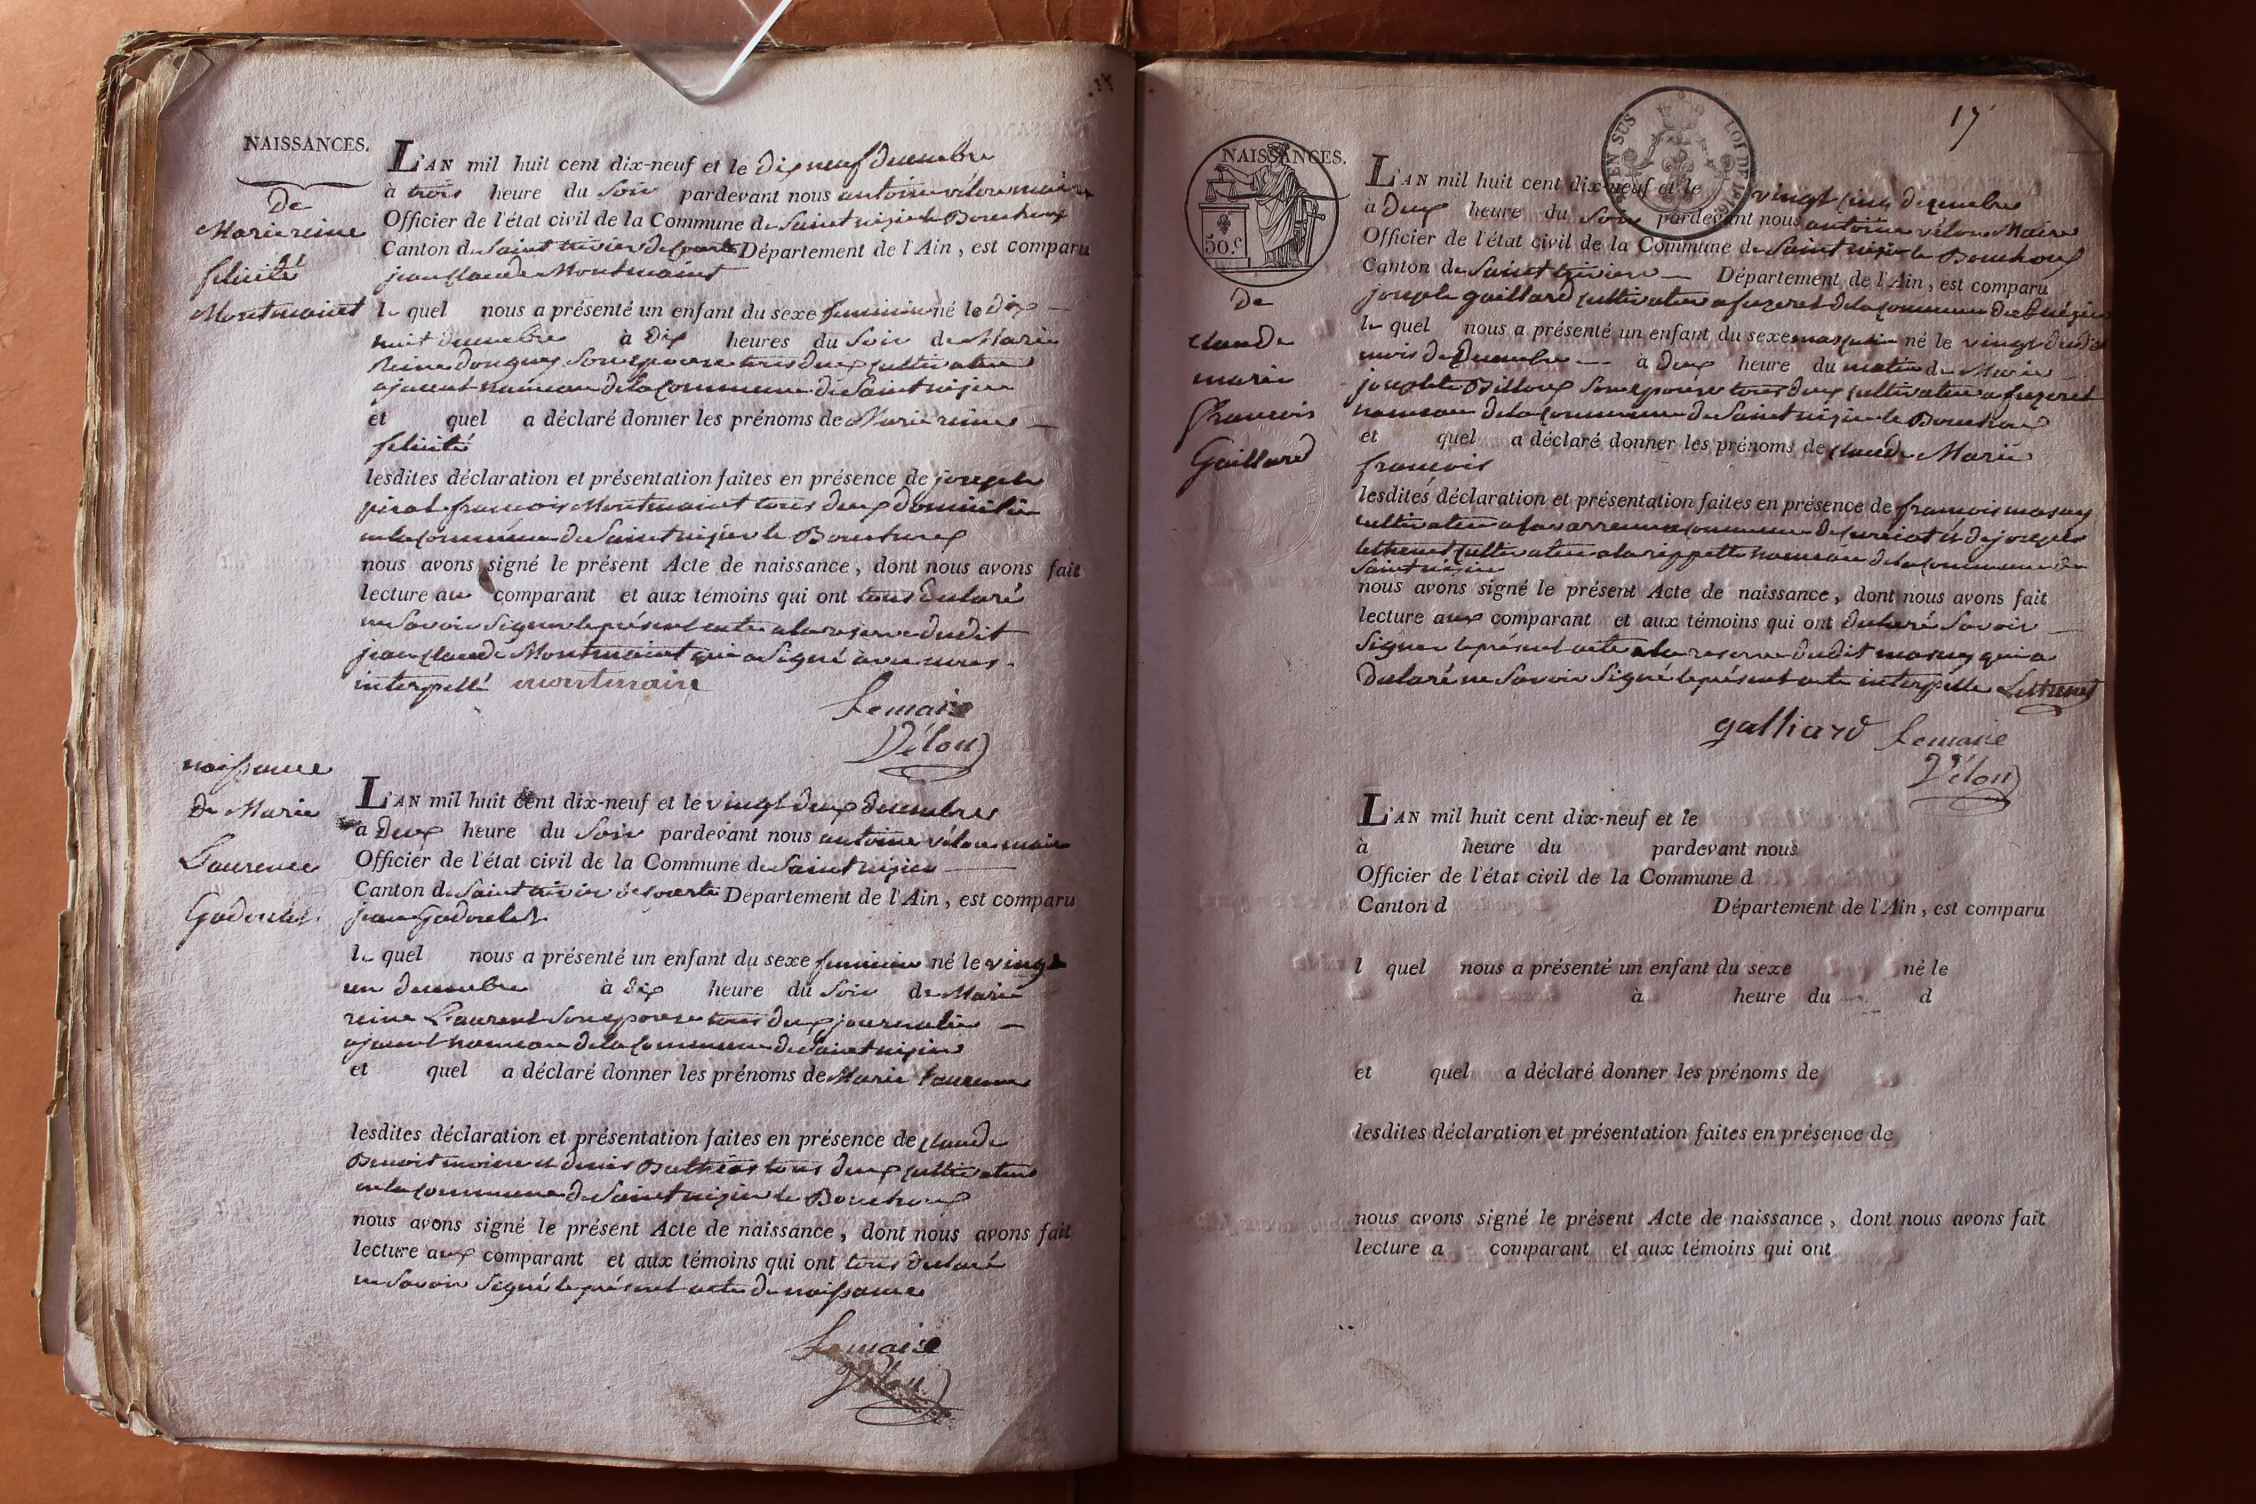 NAISSANCES.
De
Marie reine
felicité
Montmaint
L'AN mil huit cent dix-neuf et le dix neuf decembre
à trois heure du soir pardevant nous antoine vélon maire
Officier de l'état civil de la Commune de Saint nizier le Bouchoux
Canton de Saint trivier de courte Département de l'Ain, est comparu
jean claude Montmaint
le quel nous a présenté un enfant du sexe feminin né le dix
huit decembre à dix heures du soir de Marie
Reine son epouse tous deux cultivateur
hameau de la commune de Saint nizier
et quel a déclaré donner les prénoms de Marie reine
felicité
lesdites déclaration et présentation faites en présence de joseph
françois Montmaint tous deux domicilié
en la commune de Saint nizier le Bouchoux
nous avons signé le présent Acte de naissance, dont nous avons fait
lecture au comparant et aux témoins qui ont tous declaré
ne savoir signer le présent acte a la reserve dudit
jean claude Montmaint qui a signé avec nous
interpellé montmain
le maire
Vélon
naissance
de Marie
Laurence
Gadoulet
L'AN mil huit cent dix-neuf et le vingt deux decembre
à deux heure du soir pardevant nous antoine vélon maire
Officier de l'état civil de la Commune de Saint nizier
Canton de Saint trivier de courte Département de l'Ain, est comparu
jean Gadoulet
le quel nous a présenté un enfant du sexe feminin né le vingt
un decembre à dix heure du soir de Marie
reine Laurent son epouse tous deux journalier
hameau de la commune de Saint nizier
et quel a déclaré donner les prénoms de Marie Laurence
lesdites déclaration et présentation faites en présence de claude
Benoit moine et denis Bathias tous deux cultivateur
en la commune de Saint nizier le Bouchoux
nous avons signé le présent Acte de naissance, dont nous avons fait
lecture aux comparant et aux témoins qui ont tous declaré
ne savoir signé le présent acte de naissance
le maire
Vélon
17
EN SUS LOI DE 1816
NAISSANCES.
50.c
De
claude
marie
françois
Gaillard
L'AN mil huit cent dix-neuf et le vingt cinq decembre
à deux heure du soir pardevant nous antoine vélon Maire
Officier de l'état civil de la Commune de Saint nizier le Bouchoux
Canton de Saint trivier Département de l'Ain, est comparu
joseph gaillard cultivateur a fuzeret de la commune de
le quel nous a présenté un enfant du sexe masculin né le vingt
mois de decembre à deux heure du matin de Marie
josephte Billoux son epouse tous deux cultivateur a fuzeret
hameau de la commune de Saint nizier le Bouchoux
et quel a déclaré donner les prénoms de claude Marie
françois
lesdites déclaration et présentation faites en présence de françois
cultivateur a commune de curciat et de joseph
lethenet cultivateur a la rippette hameau de la commune de
Saint nizier
nous avons signé le présent Acte de naissance, dont nous avons fait
lecture aux comparant et aux témoins qui ont declaré savoir
signer le présent acte a la reserve dudit qui a
declaré ne savoir signé le présent acte interpelle Lethenet
galliard le maire
Vélon
L'AN mil huit cent dix-neuf et le
à heure du pardevant nous
Officier de l'état civil de la Commune d
Canton d Département de l'Ain, est comparu
l quel nous a présenté un enfant du sexe né le
à heure du d
et quel a déclaré donner les prénoms de
lesdites déclaration et présentation faites en présence de
nous avons signé le présent Acte de naissance, dont nous avons fait
lecture a comparant et aux témoins qui ont